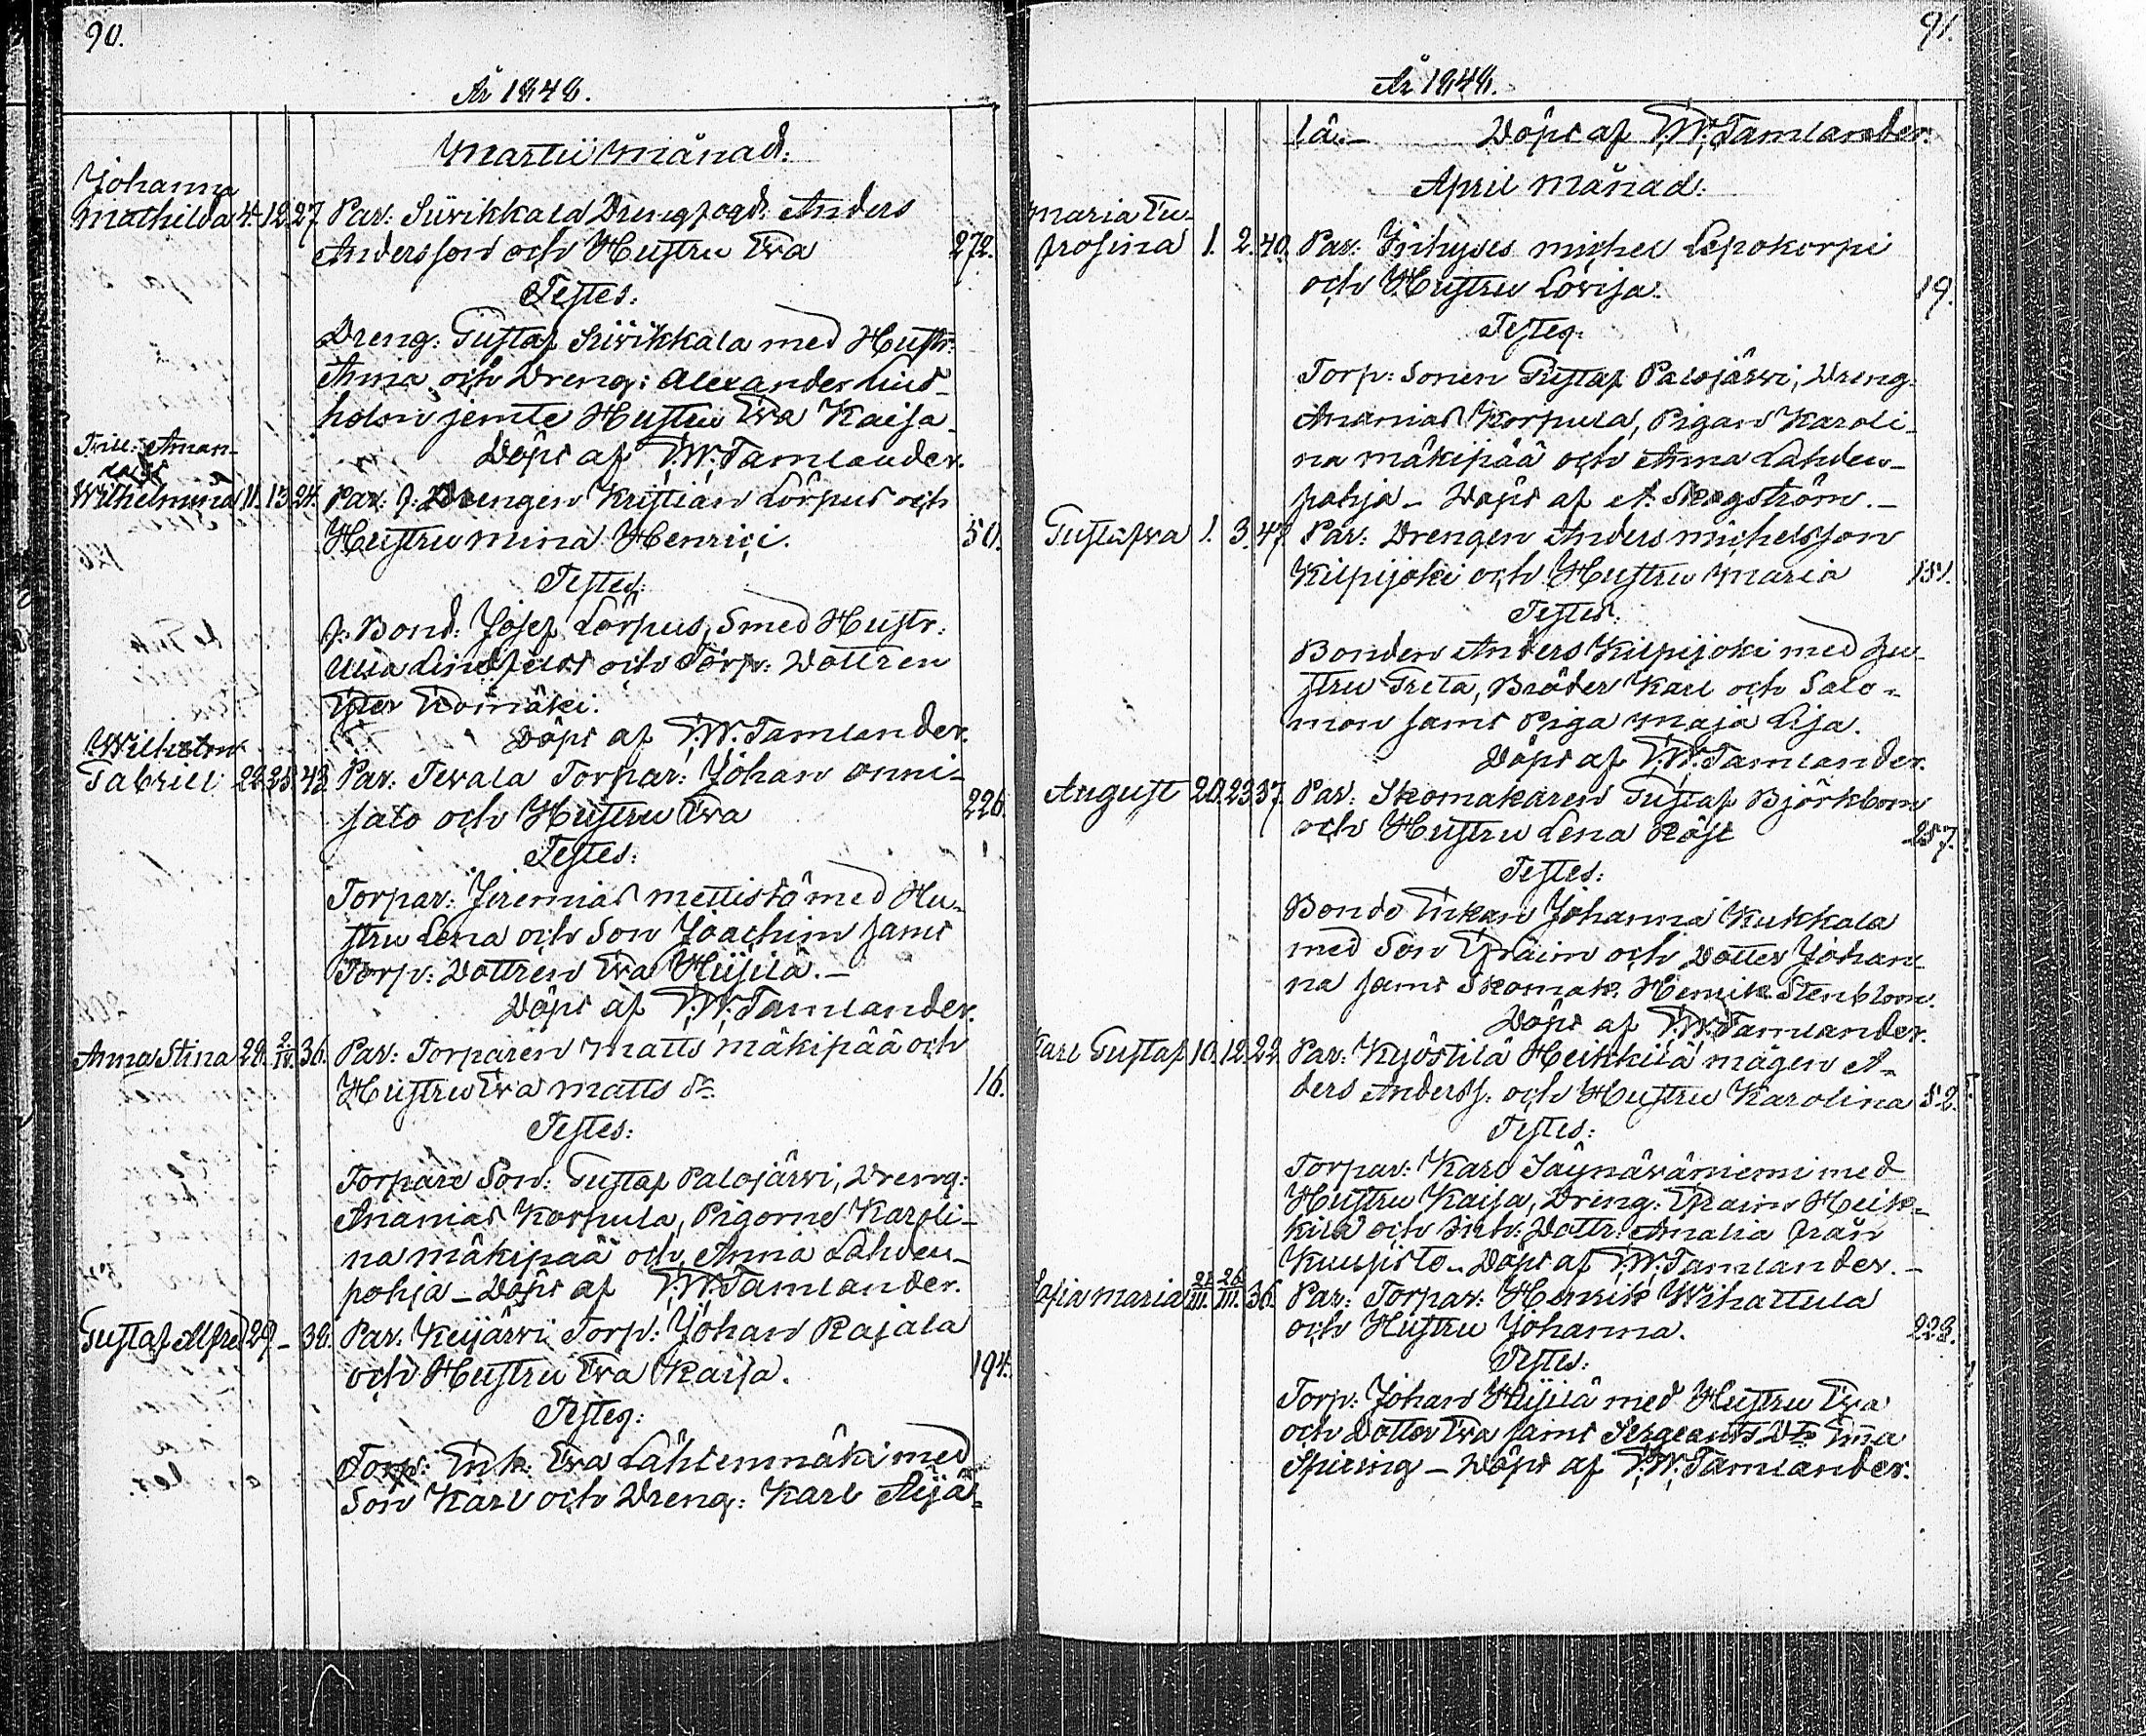 90.
År 1848.
Martii Månad.
Johanna
Mathilda 4. 12. 27. Par: Siivikkala Drengfogd: Anders
Andersson och Hustru Eva 272.
Testes:
Dreng: Gustaf Siivikkala med Hustr:
Anna och Dreng: Alexander Lind-
holm jemte Hustru Eva Kaisa.
Döpt af F.W. Tamlander.
Trill: Aman-
da
Wilhelmina 11. 13. 24. Par: f. Drengen Kristian Lörpus och
Hustru Mina Henrici. 50.
Testes:
f. Bond: Josef Lörpus, Smed Hustr:
Ulla Lindfelt och Torp: Dottren
Ester
Döpt af F.W. Tamlander.
Wilhelm
Gabriel 22. 25. 43. Par: Tevala Torpar: Johan Onni-
salo och Hustru Eva 226.
Testes:
Torpar: Jeremias Mettistö med Hu-
stru Lena och Son Joachim samt
Torp: Dottren Eva Hiisilä.-
Döpt af F.W. Tamlander.
Anna Stina 28. 2/IV. 36. Par: Torparen Matts Mäkipää och
Hustru Eva Matts dr. 16.
Testes:
Torpare Son: Gustaf Palojärvi, Dreng:
Ananias Korpula, Pigorne Karoli-
na Mäkipää och Anna Lahden-
pohja - Döpt af F.W. Tamlander.
Gustaf Alfred 29. - 38. Par: Keijärvi Torp: Johan Rajala
och Hustru Eva Kaisa. 194.
Testes:
Torp: Enk: Eva Lähteenmäki med
Son Karl och Dreng: Karl Äijä-
91.
År 1848.
lä.- Döpt af F.W. Tamlander.
April Månad.
Maria Eu-
frosina 1. 2. 40. Par: Inhyses Michel Lepokorpi
och Hustru Lovisa. 19.
Testes:
Torp: Sonen Gustaf Palojärvi, Dreng:
Ananias Korpula, Pigan Karoli-
na Mäkipää och Anna Lahden-
pohja - Döpt af A. Skogström.-
Gustafva 1. 3. 47. Par: Drengen Anders Michelsson
Kilpijoki och Hustru Maria 151.
Testes:
Bonden Anders Kilpijoki med Hu-
stru Greta, Bröder Karl och Salo-
mon samt Piga Maja Lisa.
Döpt af F.W. Tamlander.
August 20. 23. 37. Par: Skomakaren Gustaf Björkbom
och Hustru Lena Röst 257.
Testes:
Bonde Enkan Johanna Kukkala
med Son Efraim och Dotter Johan-
na samt Skomak. Henrik Stenblom.
Döpt af F.W. Tamlander.
Karl Gustaf 10. 12. 22. Par: Kyöstilä Heikkilä mågen A-
ders Anderss. och Hustru Karolina 52.
Testes:
Torpar: Karl Säynäväniemi med
Hustru Kaisa, Dreng: Efraim Heik-
kilä och Inh: Dottr: Amalia från
Kuusisto - Döpt af F.W. Tamlander.-
Sofia Maria 21/III. 26/III. 36. Par: Torpar: Henrik Wihattula
och Hustru Johanna. 223.
Testes:
Torp: Johan Hiisilä med Hustru Eva
och Dotter Eva samt Sergeants Dtr Emma
Spiring - Döpt af F.W. Tamlander.